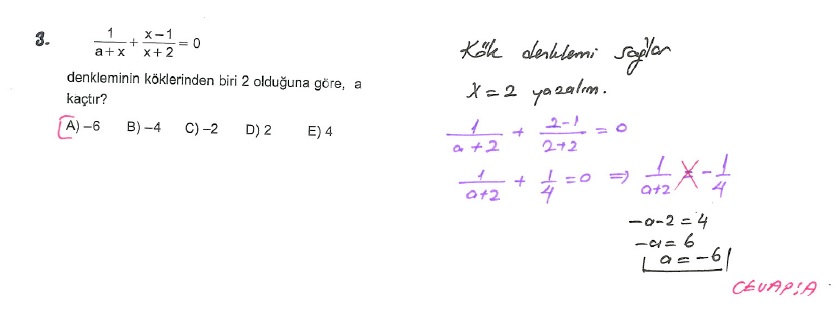 3. 1/(a+x) + (x-1)/(x+2) = 0
denkleminin köklerinden biri 2 olduğuna göre, a
kaçtır?
A) -6 B) -4 C) -2 D) 2 E) 4
Kök denklemi sağlar
X = 2 yazalım.
1/(a+2) + (2-1)/(2+2) = 0
1/(a+2) + 1/4 = 0 ⇒ 1/(a+2) = -1/4
-a-2 = 4
-a = 6
a = -6
CEVAP: A